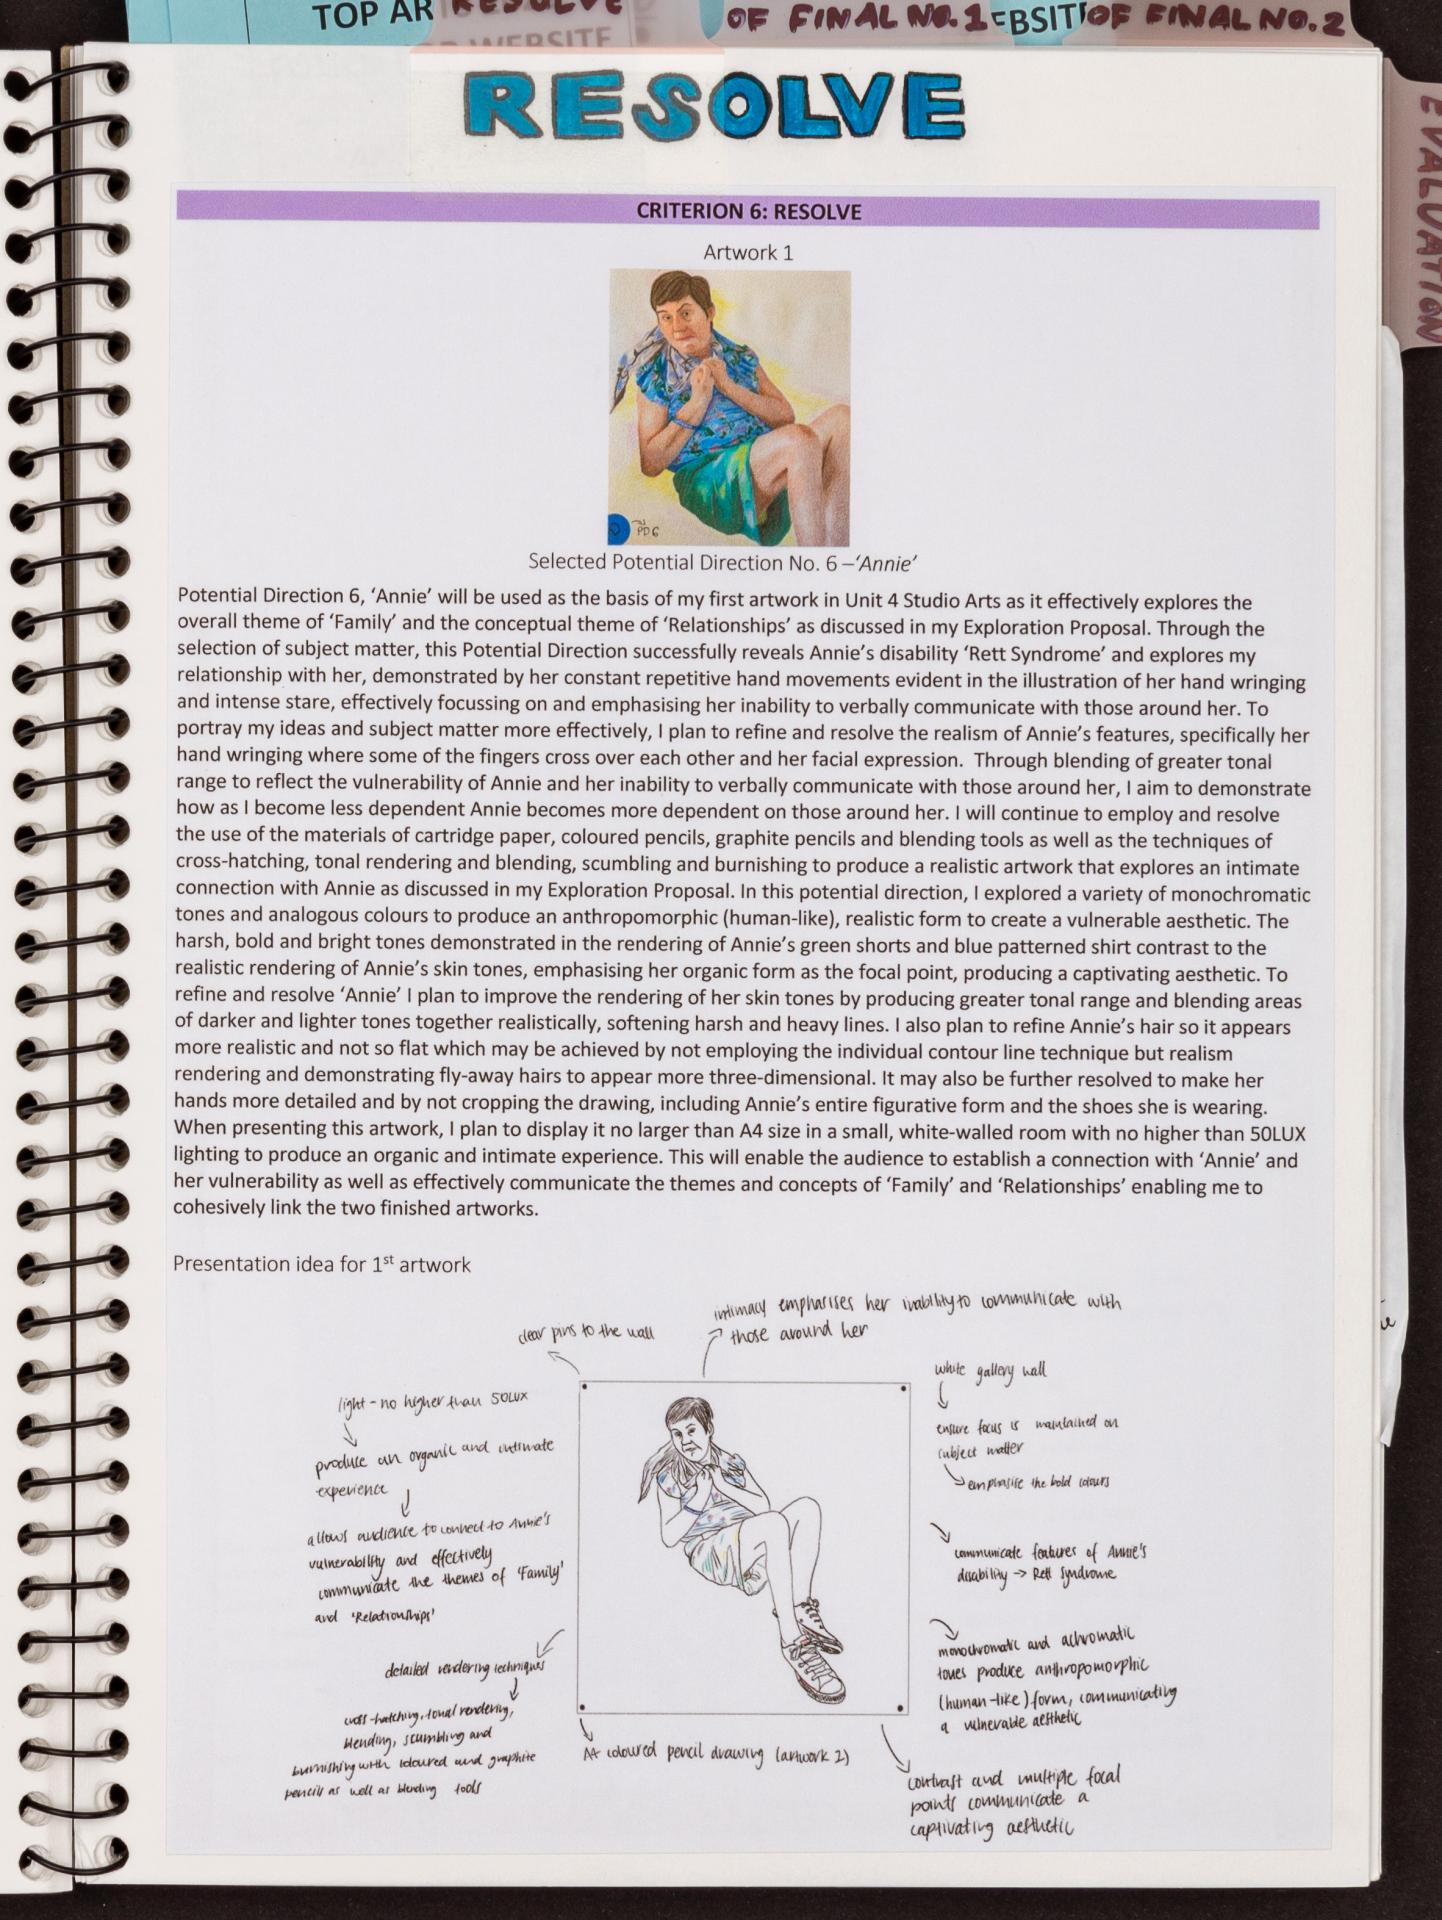 TOP AR
RESOLVE
OF FINAL NO.1
EBSIT
OF FINAL NO.2
WEBSITE
EVALUATION
RESOLVE
CRITERION 6: RESOLVE
Artwork 1
PD6
Selected Potential Direction No. 6 –‘Annie’
Potential Direction 6, ‘Annie’ will be used as the basis of my first artwork in Unit 4 Studio Arts as it effectively explores the
overall theme of ‘Family’ and the conceptual theme of ‘Relationships’ as discussed in my Exploration Proposal. Through the
selection of subject matter, this Potential Direction successfully reveals Annie’s disability ‘Rett Syndrome’ and explores my
relationship with her, demonstrated by her constant repetitive hand movements evident in the illustration of her hand wringing
and intense stare, effectively focussing on and emphasising her inability to verbally communicate with those around her. To
portray my ideas and subject matter more effectively, I plan to refine and resolve the realism of Annie’s features, specifically her
hand wringing where some of the fingers cross over each other and her facial expression.  Through blending of greater tonal
range to reflect the vulnerability of Annie and her inability to verbally communicate with those around her, I aim to demonstrate
how as I become less dependent Annie becomes more dependent on those around her. I will continue to employ and resolve
the use of the materials of cartridge paper, coloured pencils, graphite pencils and blending tools as well as the techniques of
cross-hatching, tonal rendering and blending, scumbling and burnishing to produce a realistic artwork that explores an intimate
connection with Annie as discussed in my Exploration Proposal. In this potential direction, I explored a variety of monochromatic
tones and analogous colours to produce an anthropomorphic (human-like), realistic form to create a vulnerable aesthetic. The
harsh, bold and bright tones demonstrated in the rendering of Annie’s green shorts and blue patterned shirt contrast to the
realistic rendering of Annie’s skin tones, emphasising her organic form as the focal point, producing a captivating aesthetic. To
refine and resolve ‘Annie’ I plan to improve the rendering of her skin tones by producing greater tonal range and blending areas
of darker and lighter tones together realistically, softening harsh and heavy lines. I also plan to refine Annie’s hair so it appears
more realistic and not so flat which may be achieved by not employing the individual contour line technique but realism
rendering and demonstrating fly-away hairs to appear more three-dimensional. It may also be further resolved to make her
hands more detailed and by not cropping the drawing, including Annie’s entire figurative form and the shoes she is wearing.
When presenting this artwork, I plan to display it no larger than A4 size in a small, white-walled room with no higher than 50LUX
lighting to produce an organic and intimate experience. This will enable the audience to establish a connection with ‘Annie’ and
her vulnerability as well as effectively communicate the themes and concepts of ‘Family’ and ‘Relationships’ enabling me to
cohesively link the two finished artworks.
Presentation idea for 1st artwork
intimacy emphasises her inability to communicate with
those around her
clear pins to the wall
light - no higher than 50LUX
produce an organic and intimate
experience
allows audience to connect to Annie's
vulnerability and effectively
communicate the themes of 'Family'
and 'Relationships'
detailed rendering techniques
cross-hatching, tonal rendering,
blending, scumbling and
burnishing with coloured and graphite
pencils as well as blending tools
white gallery wall
ensure focus is maintained on
subject matter
emphasise the bold colours
communicate features of Annie's
disability → Rett Syndrome
monochromatic and achromatic
tones produce anthropomorphic
(human-like) form, communicating
a vulnerable aesthetic
A4 coloured pencil drawing (artwork 2)
contrast and multiple focal
points communicate a
captivating aesthetic